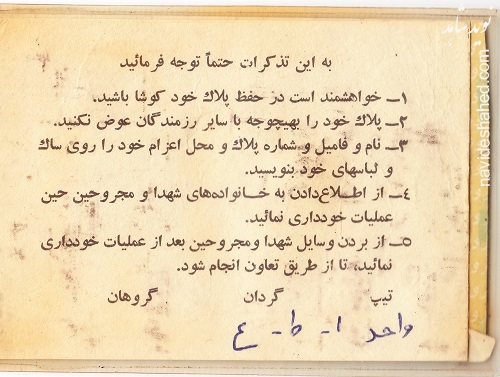 به این تذکرات حتماً توجه فرمائید
۱ـ خواهشمند است در حفظ پلاك خود کوشا باشید.
۲ـ پلاك خود را بهیچوجه با سایر رزمندگان عوض نکنید.
۳ـ نام و فامیل و شماره پلاك و محل اعزام خود را روی ساك
و لباسهای خود بنویسید.
٤ـ از اطلاع‌دادن به خانواده‌های شهدا و مجروحین حین
عملیات خودداری نمائید.
۵ـ از بردن وسایل شهدا ومجروحین بعد از عملیات خودداری
نمائید، تا از طریق تعاون انجام شود.
تیپ گردان گروهان
واحد ا - ط - ع
نوید شاهد
navideshahed.com